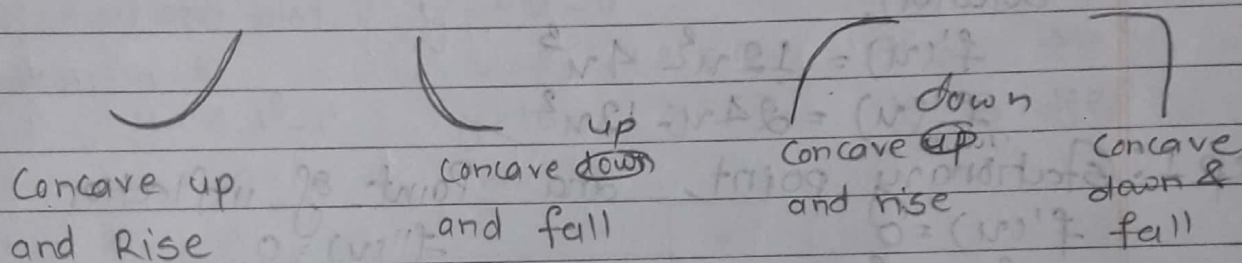 Concave up
and Rise
up
Concave down
and fall
down
Concave up
and rise
Concave
down &
fall